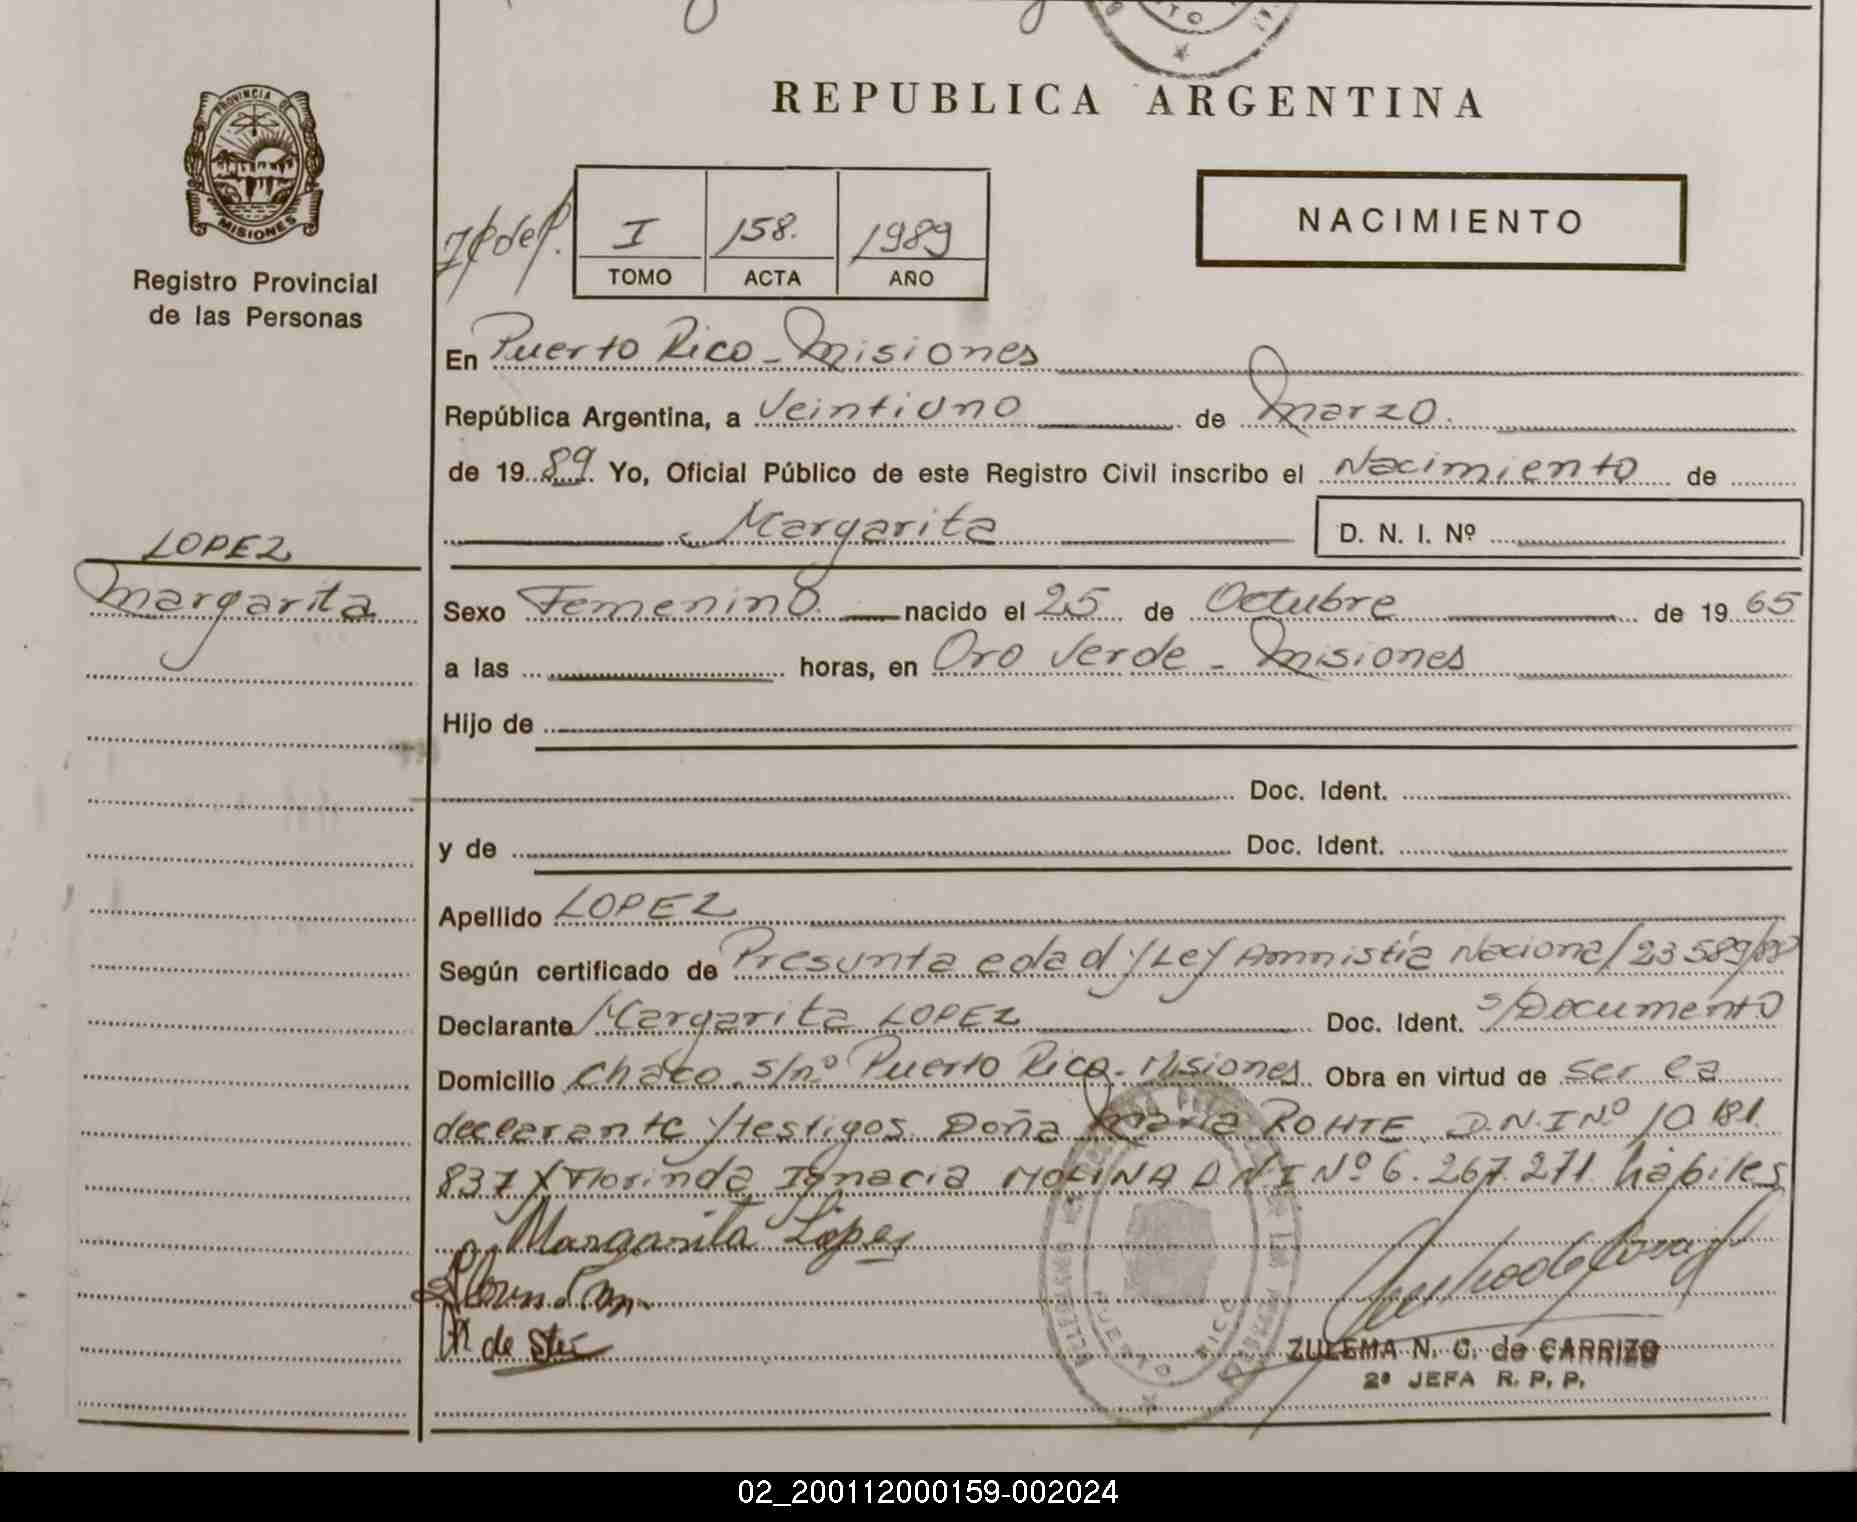 REPUBLICA ARGENTINA
PROVINCIA DE
MISIONES
Registro Provincial
de las Personas
I 158. 1989
TOMO ACTA AÑO
NACIMIENTO
En Puerto Rico - Misiones
República Argentina, a Veintiuno de Marzo.
de 19 89. Yo, Oficial Público de este Registro Civil inscribo el Nacimiento de
Margarita D. N. I. Nº
LOPEZ
Margarita
Sexo Femenino. nacido el 25 de Octubre de 19 65
a las horas, en Oro Verde - Misiones
Hijo de
Doc. Ident.
y de Doc. Ident.
Apellido LOPEZ
Según certificado de Presunta edad y/Ley Amnistía Nacional 23589/88
Declarante Margarita LOPEZ Doc. Ident. s/Documento
Domicilio Chaco s/nº Puerto Rico - Misiones Obra en virtud de ser la
declarante y/testigos Doña Maria ROHTE D.N.I Nº 10.181.
837 y Florinda Ignacia MOLINA D.N.I Nº 6.267.271 hábiles
Margarita Lopes
de
PUERTO RICO
ZULEMA N. C. de CARRIZO
2ª JEFA R. P. P.
02_200112000159-002024